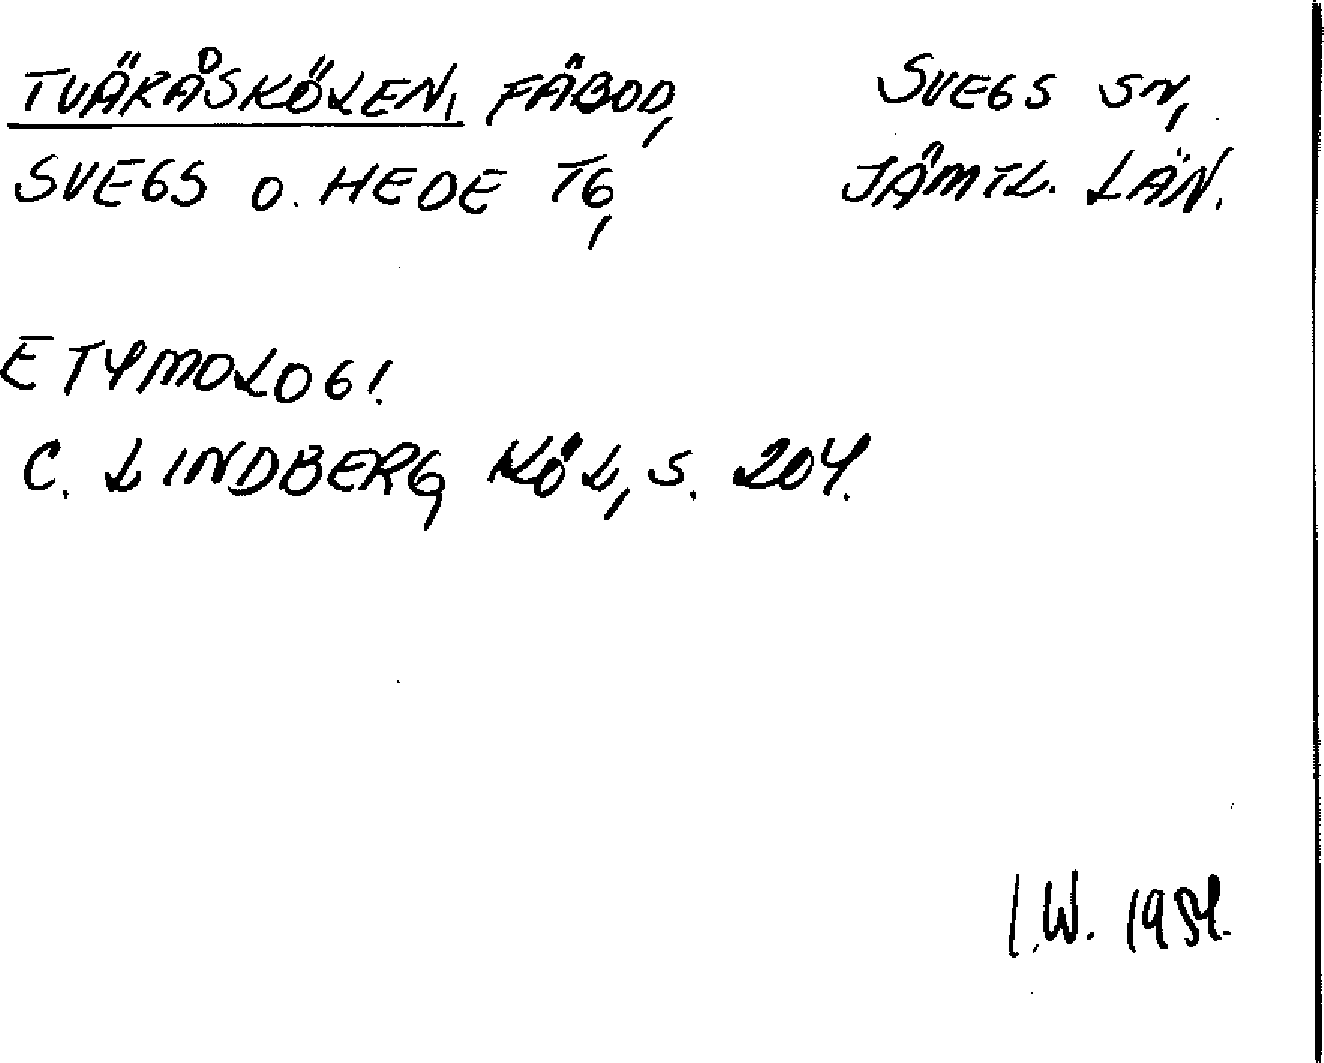 TVÄRÅSKÖLEN, FÄBOD, SVEGS SN,
SVEGS O. HEDE TG, JÄMTL. LÄN.
ETYMOLOGI.
C. LINDBERG, KÖL, S. 204.
I.W. 1984.